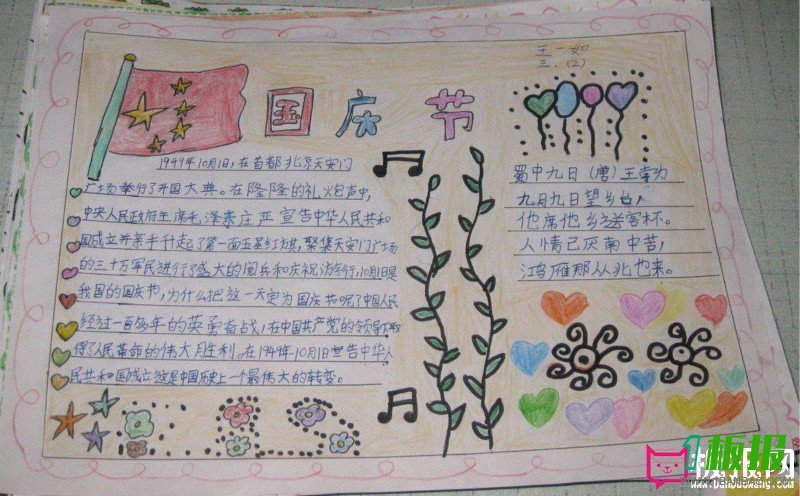 王一如
三、(2)
国庆节
1949年10月1日,在首都北京天安门
广场举行了开国大典。在隆隆的礼火包声中,
中央人民政府主席毛泽东庄严宣告中华人民共和
国成立并亲手升起了第一面五星红旗,聚集天安门广场
的三十万军民进行了盛大的阅兵和庆祝游行,10月1日是
我国的国庆节,为什么把这一天定为国庆节呢?中国人民
经过一百多年的英勇奋战,在中国共产党的领导下取
得了人民革命的伟大胜利。在1949年10月1日宣告中华人
民共和国成立这是中国历史上一个最伟大的转变。
蜀中九日(唐)王勃
九月九日望乡台,
他席他乡送客杯。
人情已厌南中苦,
鸿雁那从北地来。
板报网
www.banbaowang.com